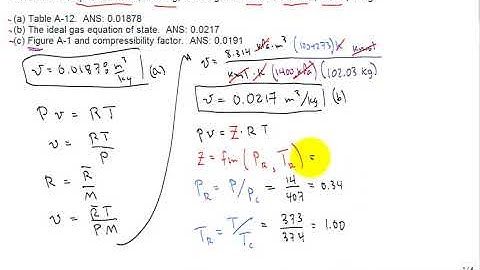 (a) Table A-12. ANS: 0.01878
(b) The ideal gas equation of state. ANS: 0.0217
(c) Figure A-1 and compressibility factor. ANS: 0.0191
v = 0.01878 m³/kg (a)
P v = R T
v = RT/P
R = R̄/M
v = R̄T/PM
v = 8.314 kPa·m³ (100+273)K kmol / kmol·K (1400 kPa) (102.03 kg)
v = 0.0217 m³/kg (b)
Pv = Z·RT
Z = fun(P_R, T_R) =
P_R = P/P_c = 14/407 = 0.34
T_R = T/T_c = 373/374 = 1.00